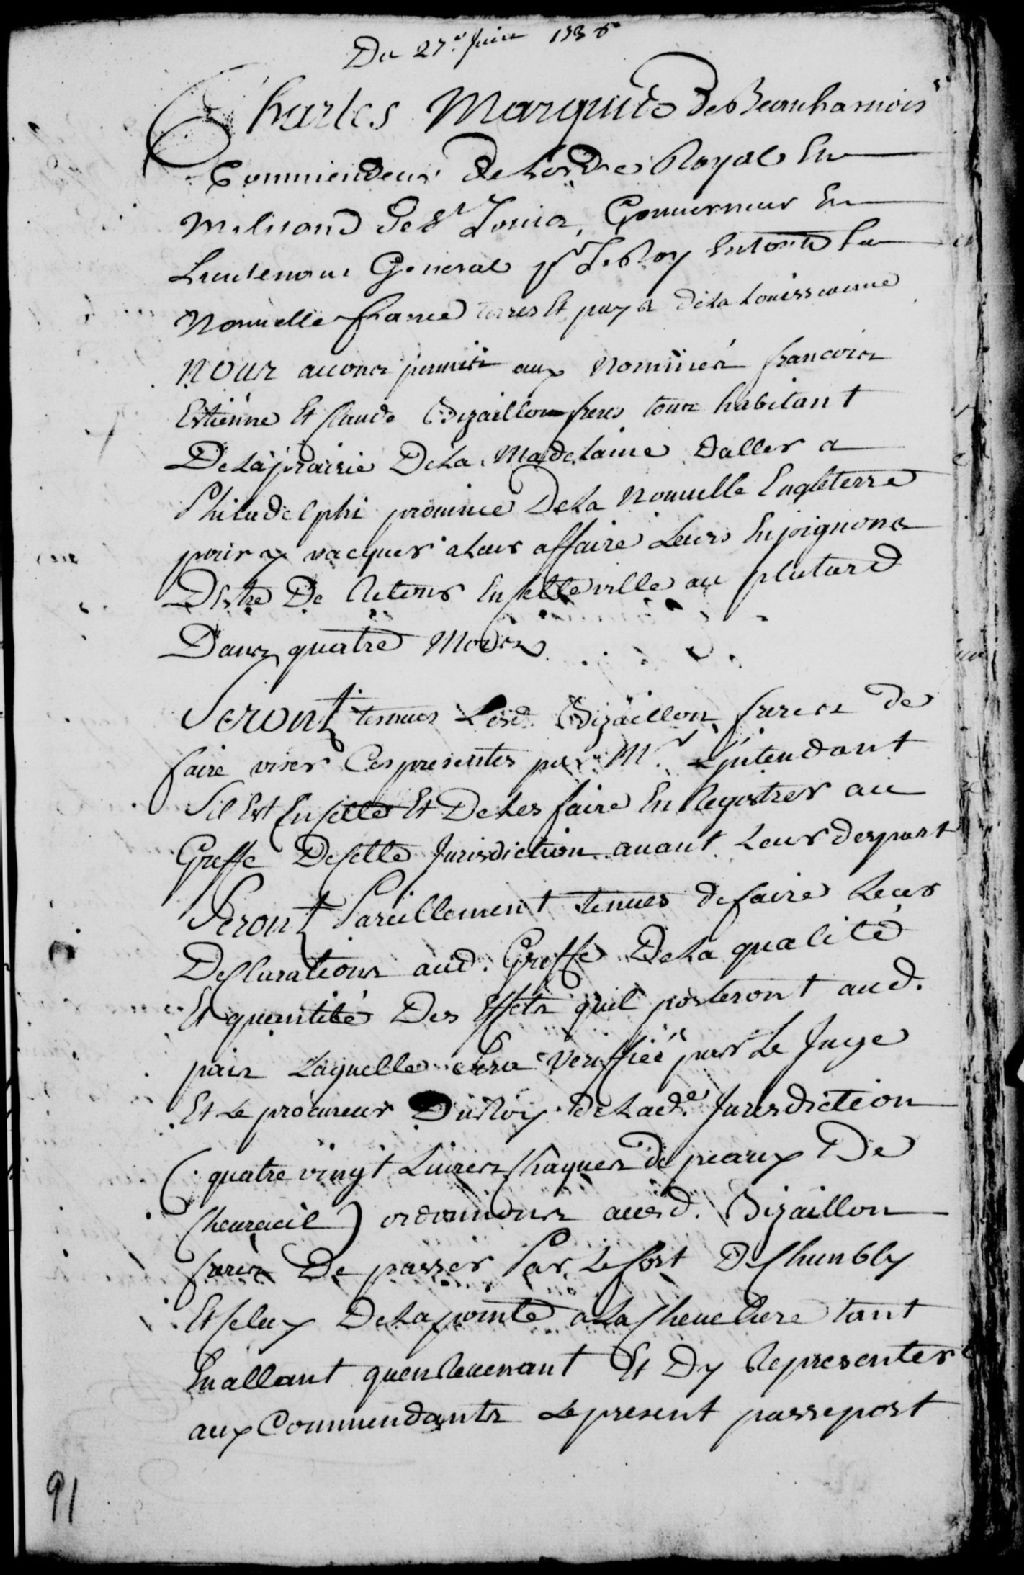 Du 27e Juin 1736
Charles Marquis De Beauharnois
Commendeur De Lordre Royal Et
Militaire De St Louis, Gouverneur Et
Lieutenant General pr Le Roy En toute La
Nouuelle france terres Et pays de La Louissianne
Nous auons permis aux nommés francois
Estiénne Et Claude Bizaillon freres tous habitant
De La prairie De La Madelaine daller a
Philadelphi prouince De La Nouuelle Engleterre
pour y vacquer a leur affaire Leurs Enjoignons
Destre De Retour En sette ville au plutard
Dans quatre Mois
Seront tenues Lesd. Bizaillon freres de
faire viser Ces presentes par Mr. Lintendant
Sil Est En sette Et De Les faire En Registrer au
Greffe De sette Jurisdiction auant Leur depart
Seront Pareillement tenues de faire Leurs
Desclarations aud. Greffe De La qualité
Et quantité Des Effets quil porteront aud.
pais Laquelle sera veriffiéé par Le Juge
Et Le procureur Du Roy de Lade Jurisdiction
(quatre vingt Liures Chaques de peaux De
Cheureüil) ordonnons ausd. Bizaillon
freres De passer Par Le fort De Chambly
Et Celuy De La pointe a La Cheueliere tant
En allant quen Reuenant Et Dy Representer
aux Commendants Le present passeport
91